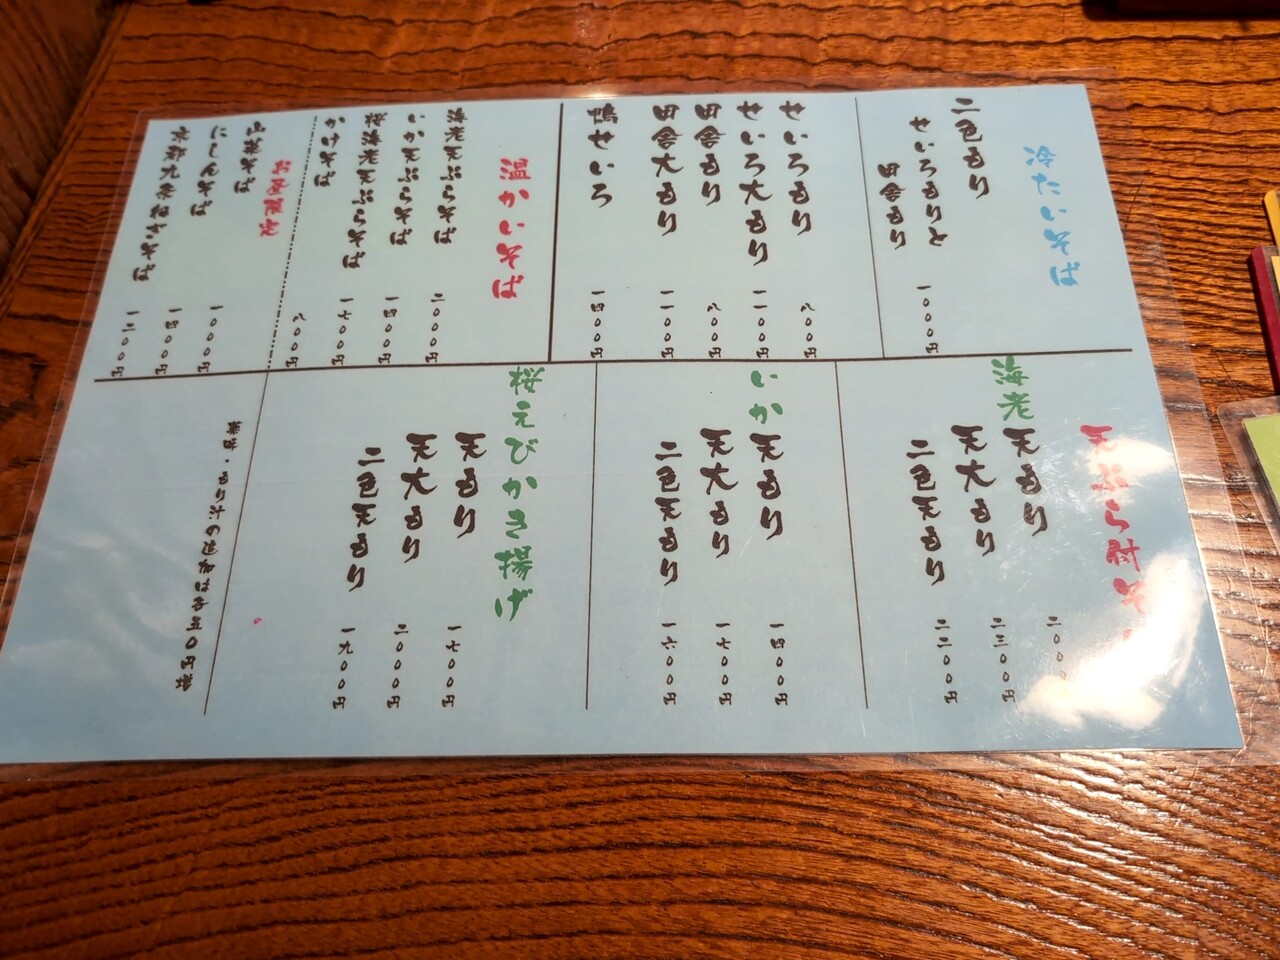 冷たいそば
二色もり
せいろもりと
田舎もり 一〇〇〇円
せいろもり 八〇〇円
せいろ大もり 一一〇〇円
田舎もり 八〇〇円
田舎大もり 一一〇〇円
鴨せいろ 一四〇〇円
温かいそば
海老天ぷらそば 二〇〇〇円
いか天ぷらそば 一四〇〇円
桜海老天ぷらそば 一七〇〇円
かけそば 八〇〇円
山菜そば 一〇〇〇円
にしんそば 一四〇〇円
京都九条ねぎそば 一二〇〇円
天ぷら付そ
海老
天もり 二〇〇
天大もり 二三〇〇円
二色天もり 二二〇〇円
いか
天もり 一四〇〇円
天大もり 一七〇〇円
二色天もり 一六〇〇円
桜えびかき揚げ
天もり 一七〇〇円
天大もり 二〇〇〇円
二色天もり 一九〇〇円
薬味・もり汁の追加は各五〇円増